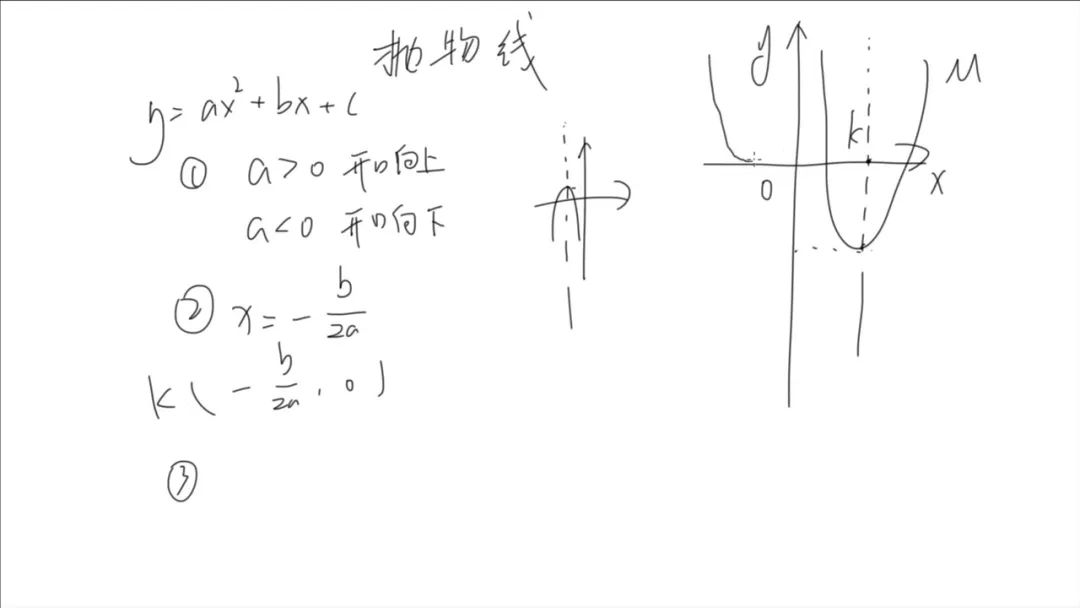 抛物线
y=ax²+bx+c
① a>0 开口向上
a<0 开口向下
② x=-b/2a
k(-b/2a,0)
③
y
M
k
0
x